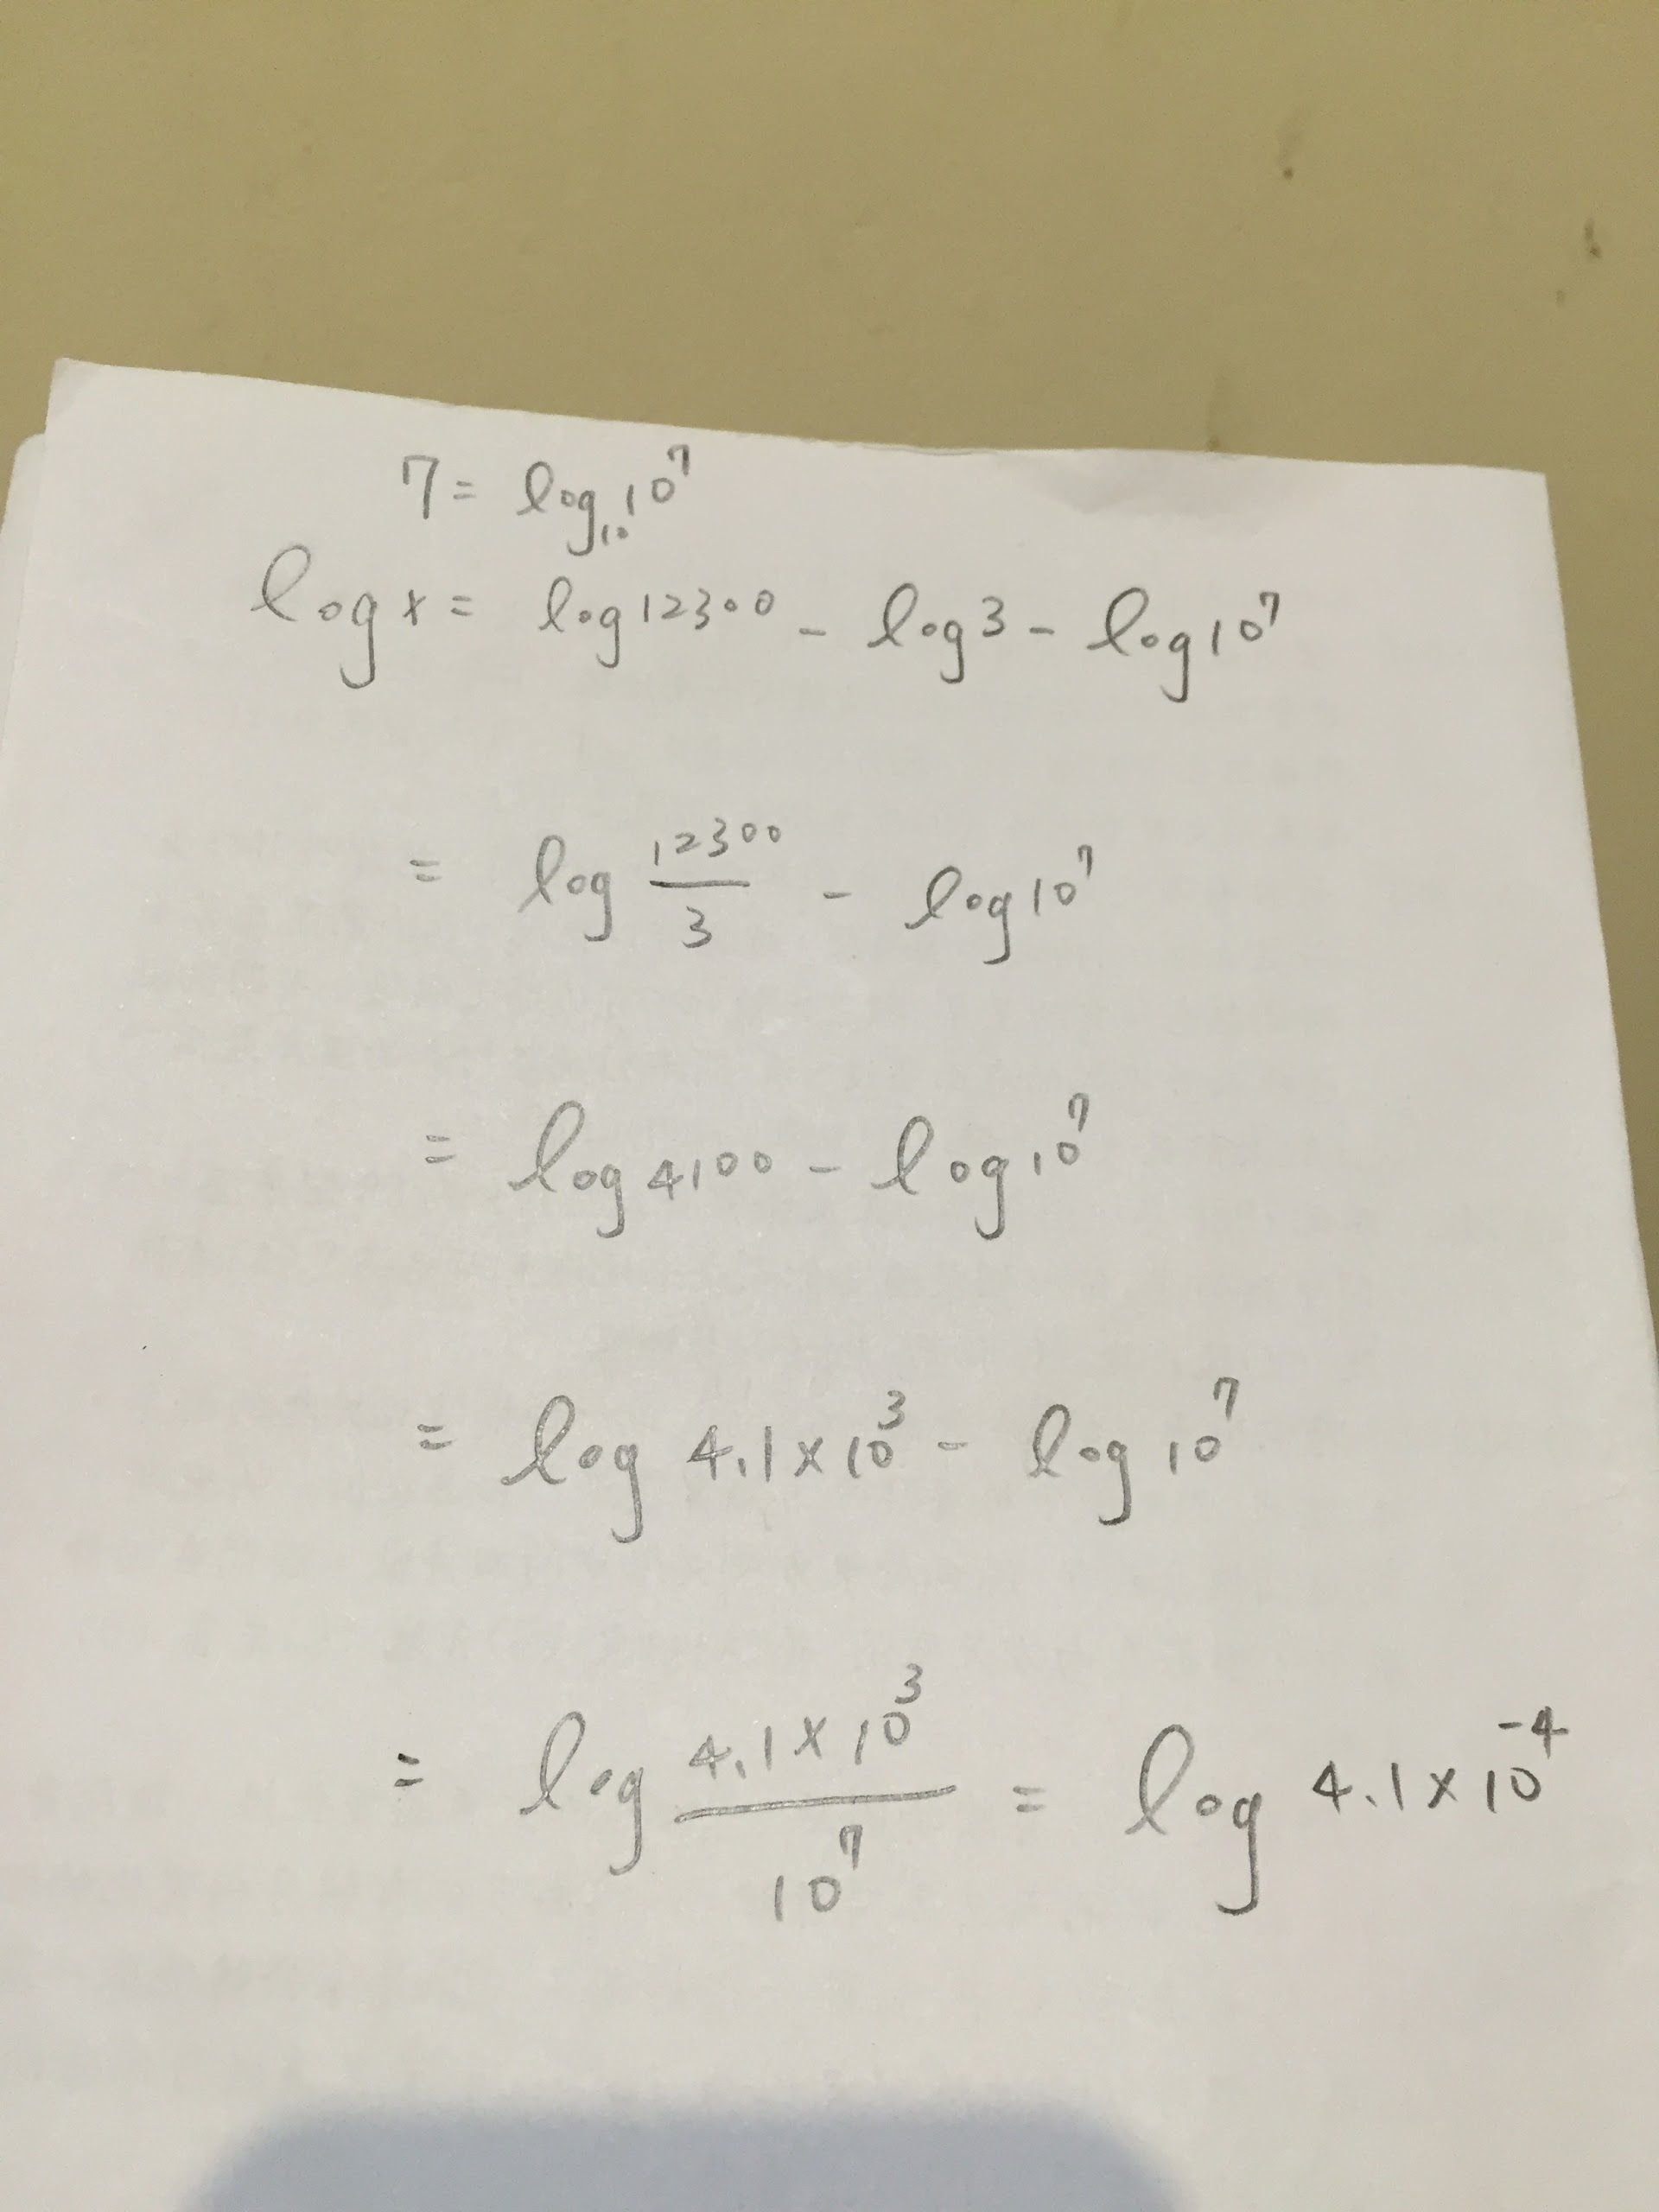 7 = log₁₀10⁷
log x = log 12300 - log 3 - log 10⁷
= log 12300/3 - log 10⁷
= log 4100 - log 10⁷
= log 4.1 × 10³ - log 10⁷
= log 4.1 × 10³/10⁷ = log 4.1 × 10⁻⁴